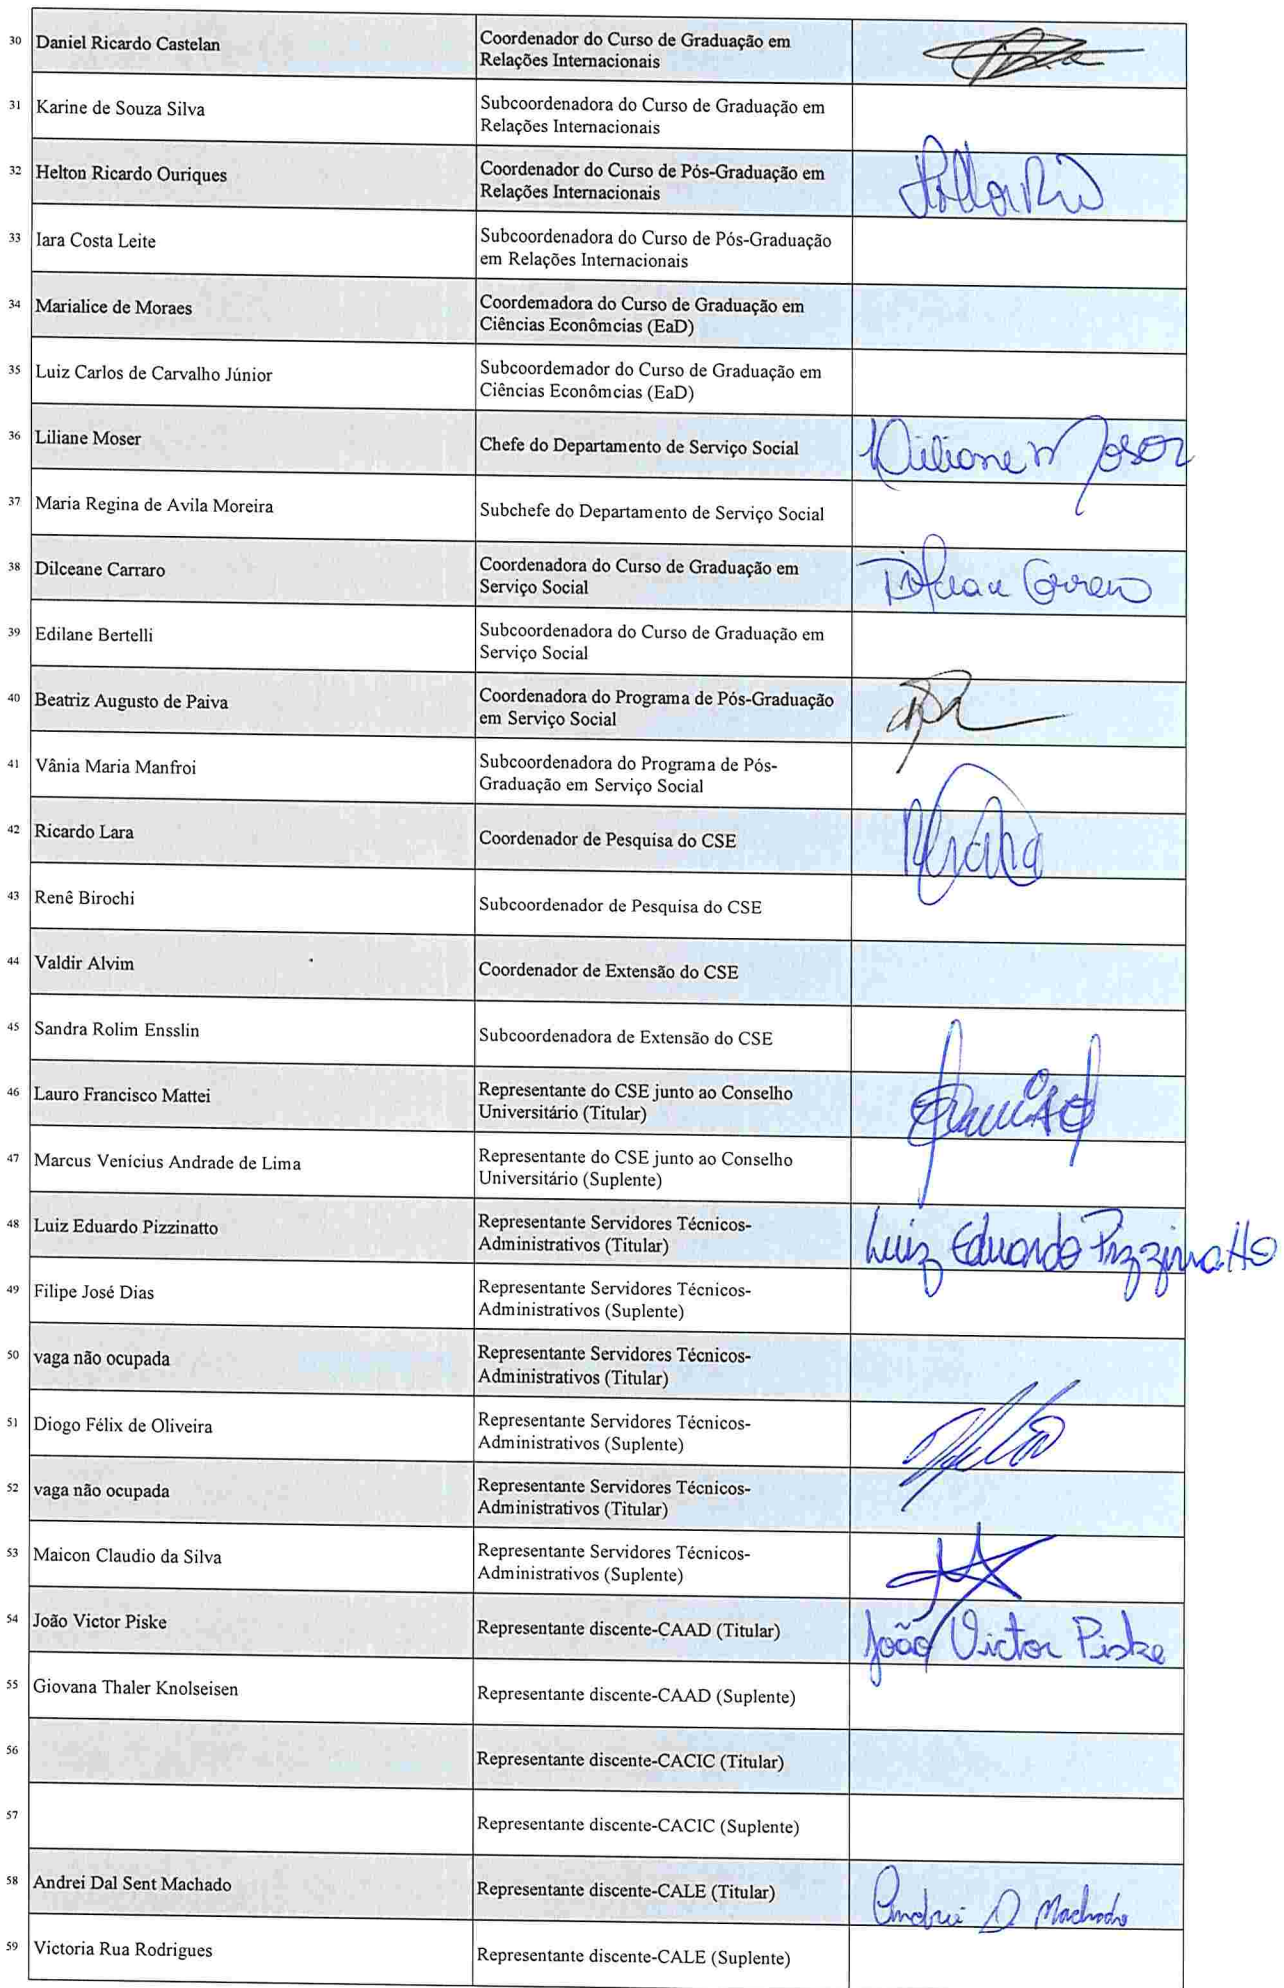 30 Daniel Ricardo Castelan Coordenador do Curso de Graduação em
Relações Internacionais
31 Karine de Souza Silva Subcoordenadora do Curso de Graduação em
Relações Internacionais
32 Helton Ricardo Ouriques Coordenador do Curso de Pós-Graduação em
Relações Internacionais
33 Iara Costa Leite Subcoordenadora do Curso de Pós-Graduação
em Relações Internacionais
34 Marialice de Moraes Coordemadora do Curso de Graduação em
Ciências Econômcias (EaD)
35 Luiz Carlos de Carvalho Júnior Subcoordemador do Curso de Graduação em
Ciências Econômcias (EaD)
36 Liliane Moser Chefe do Departamento de Serviço Social Liliane Moser
37 Maria Regina de Avila Moreira Subchefe do Departamento de Serviço Social
38 Dilceane Carraro Coordenadora do Curso de Graduação em
Serviço Social
39 Edilane Bertelli Subcoordenadora do Curso de Graduação em
Serviço Social
40 Beatriz Augusto de Paiva Coordenadora do Programa de Pós-Graduação
em Serviço Social
41 Vânia Maria Manfroi Subcoordenadora do Programa de Pós-
Graduação em Serviço Social
42 Ricardo Lara Coordenador de Pesquisa do CSE
43 Renê Birochi Subcoordenador de Pesquisa do CSE
44 Valdir Alvim Coordenador de Extensão do CSE
45 Sandra Rolim Ensslin Subcoordenadora de Extensão do CSE
46 Lauro Francisco Mattei Representante do CSE junto ao Conselho
Universitário (Titular)
47 Marcus Venícius Andrade de Lima Representante do CSE junto ao Conselho
Universitário (Suplente)
48 Luiz Eduardo Pizzinatto Representante Servidores Técnicos-
Administrativos (Titular) Luiz Eduardo Pizzinatto
49 Filipe José Dias Representante Servidores Técnicos-
Administrativos (Suplente)
50 vaga não ocupada Representante Servidores Técnicos-
Administrativos (Titular)
51 Diogo Félix de Oliveira Representante Servidores Técnicos-
Administrativos (Suplente)
52 vaga não ocupada Representante Servidores Técnicos-
Administrativos (Titular)
53 Maicon Claudio da Silva Representante Servidores Técnicos-
Administrativos (Suplente)
54 João Victor Piske Representante discente-CAAD (Titular) João Victor Piske
55 Giovana Thaler Knolseisen Representante discente-CAAD (Suplente)
56 Representante discente-CACIC (Titular)
57 Representante discente-CACIC (Suplente)
58 Andrei Dal Sent Machado Representante discente-CALE (Titular) Andrei D Machado
59 Victoria Rua Rodrigues Representante discente-CALE (Suplente)